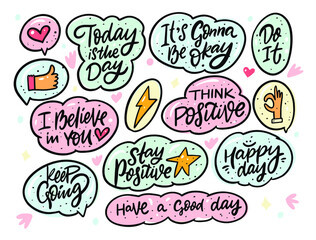 Today
is the
Day
It's Gonna
Be Okay
Do
It.
I Believe
in You
THINK
Positive
Keep
Going
Stay
Positive
Happy
day
Have a Good day